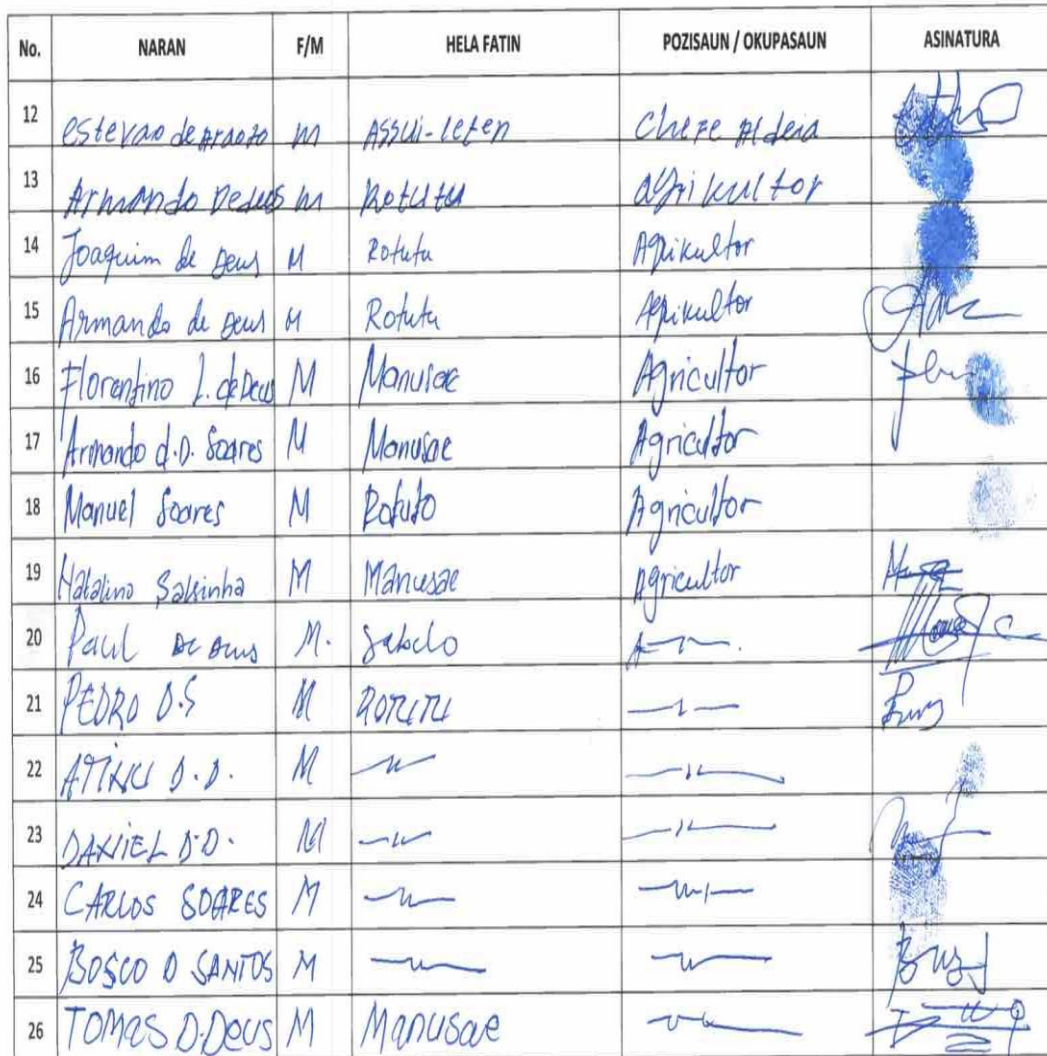 No. NARAN F/M HELA FATIN POZISAUN / OKUPASAUN ASINATURA
12 estevao de Araojo m Assui-leten Chefe Aldeia
13 Armando Dedeus m Rotutu agrikultor
14 Joaquim de Deus M Rotutu Agrikultor
15 Armando de Deus M Rotutu Agrikultor
16 Florentino L. de Deus M Manusae Agricultor
17 Armando d.D. Soares M Manusae Agricultor
18 Manuel Soares M Rotuto Agricultor
19 Natalino Salsinha M Manusae Agricultor
20 Paul De Deus M.
21 PEDRO D.S M ROTUTU
22 D.D. M
23 DANIEL D.D. M
24 CARLOS SOARES M
25 BOSCO D SANTOS M
26 TOMAS D.Deus M Manusae